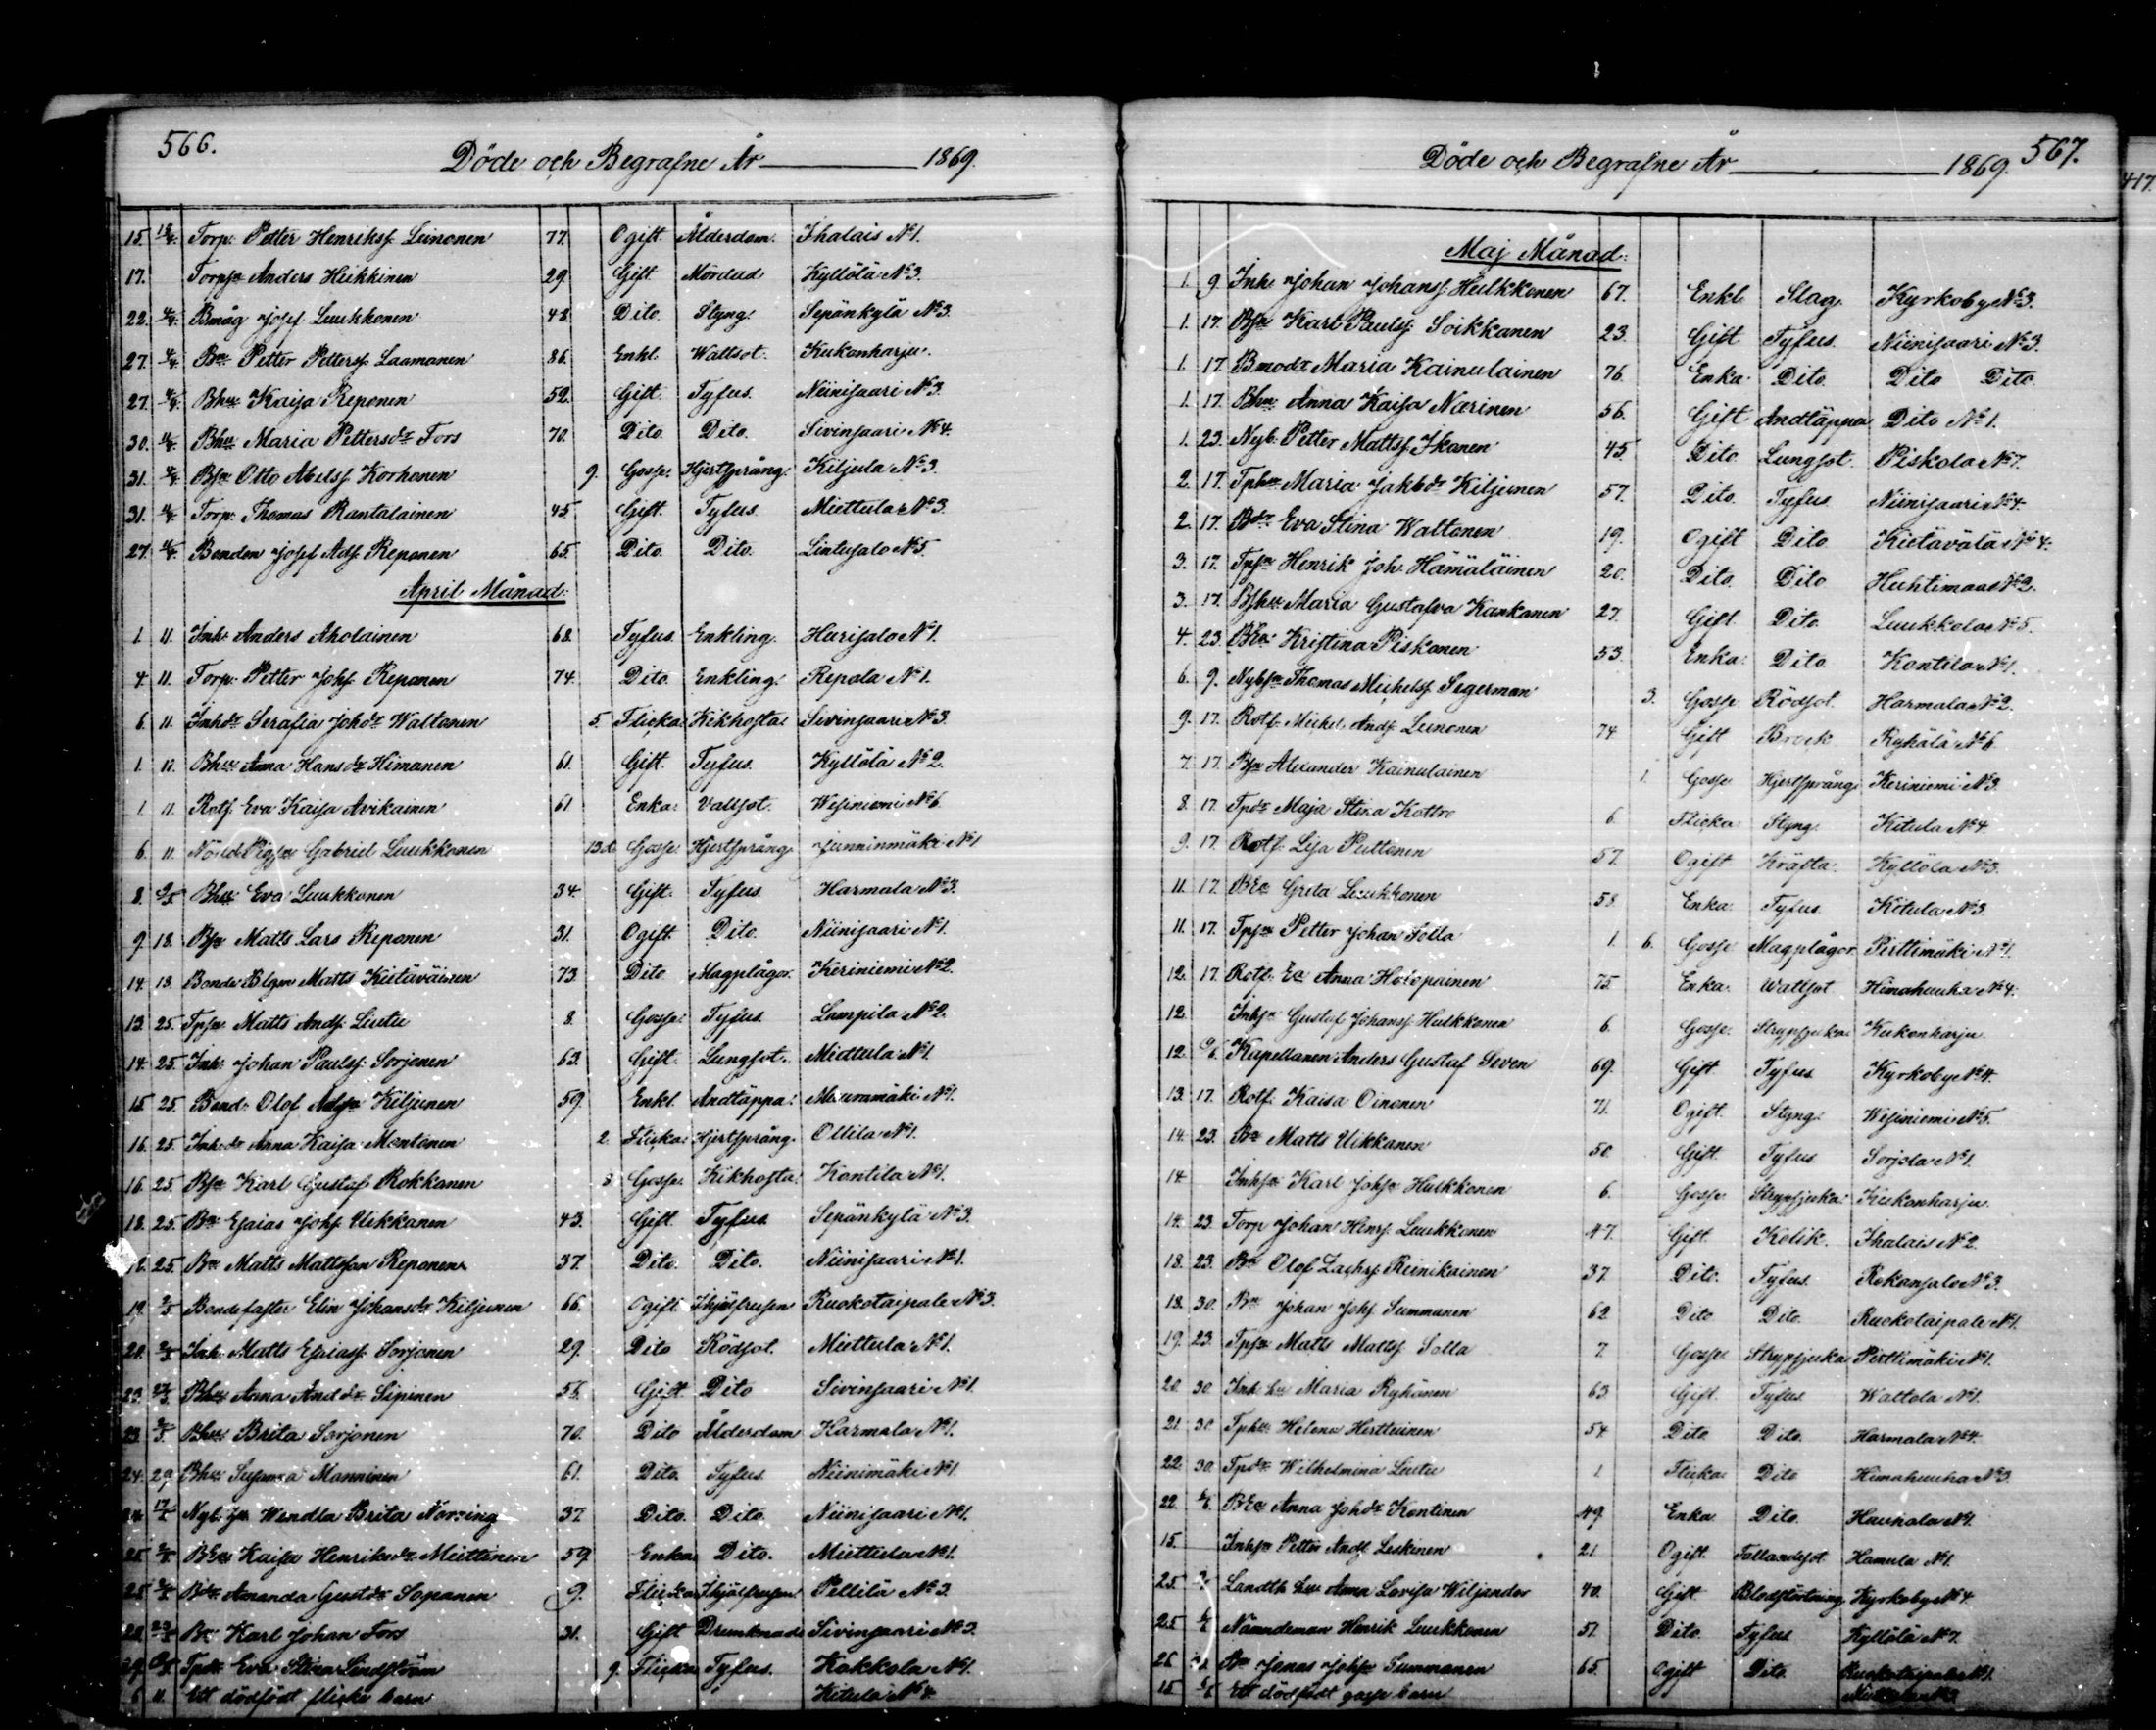 566.
Döde och Begrafne År 1869.
15. 18/4. Torp. Petter Henriksf. Leinonen 77. Ogift Ålderdom. Ihalais No 1.
17. Torpsn Anders Heikkinen 29. Gift Mördad Kyllölä No 3.
22. 4/4. Bmåg Josef Luukkonen 48. Dito Styng. Sepänkylä No 3.
27. 4/4. Bn Petter Pettersf. Laamanen 86. Enkl. Wattsot. Kukonharju.
27. 4/4. Bhu Kaisa Reponen 52. Gift Tyfus. Niinisaari No 3.
30. 11/4. Bhu Maria Pettersdr Fors 70. Dito. Dito. Sivinsaari No 4.
31. 4/4. Bsn Otto Abelsf. Korhonen 9. Gosse. Hjertsprång. Kiljula No 3.
31. 11/4. Torp. Thomas Rantalainen 45. Gift. Tyfus. Miettula No 3.
27. 11/4. Bonden Josef Adsf. Reponen 65. Dito. Dito. Lintusalo No 5.
April Månad.
1. 11. Inh. Anders Aholainen 68. Tyfus Enkling. Hurisalo No 1.
4. 11. Torp. Petter Johsf. Reponen 74. Dito Enkling. Repola No 1.
6. 11. Inhdr Serafia Johdr Waltonen 5. Flicka. Kikhosta. Sivinsaari No 3.
1. 11. Bhu Anna Hansdr Himanen 61. Gift. Tyfus. Kyllölä No 2.
1. 11. Rotf. Eva Kaisa Avikainen 61 Enka. Vattsot. Wesiniemi No 6.
6. 11. Gabriel Luukkonen 13 d. Gosse. Hjertsprång. Junninmäki No 1
8. 2/5 Bhu Eva Luukkonen 34. Gift. Tyfus. Harmala No 3.
9. 18. Bsn Matts Lars Reponen 31. Ogift. Dito. Niinisaari No 1.
14. 18. Bonde Matts Kietäväinen 73. Dito Magplågor. Keriniemi No 2.
13. 25. Tpsn Matts Andsf. Liutu 8. Gosse. Tyfus. Lampila No 2.
14. 25. Inh. Johan Paulsf. Sorjonen 63. Gift. Lungsot. Miettula No 1.
15. 25. Bond. Olof Kiljunen 59. Enkl. Andtäppa. Muurinmäki No 1.
16. 25. Inh. dr Anna Kaisa Montonen 2. Flicka. Hjertsprång. Ollila No 1.
16. 25. Bsn Karl Gustaf Rokkanen 3 Gosse. Kikhosta. Kontila No 1.
18. 25. Bn Esaias Johsf. Uikkanen 43. Gift. Tyfus Sepänkylä No 3.
18. 25. Bn Matts Mattsson Reponen 37. Dito. Dito. Niinisaari No 1.
19. 2/5 Bondesyster Elin Johansdr Kiljunen 66. Ogift Ihjälfrusen Ruokotaipale No 3.
20. 2/5 Inh. Matts Esaiasf. Sorjonen 29. Dito Rödsot. Miettula No 1.
23. 23/5. Bhu Anna Anddr Sipinen 56. Gift Dito Sivinsaari No 1.
23. 2/5. Bhu Brita Sorjonen 70. Dito Ålderdom Harmala No 1.
24. 29 Bhu Susanna Manninen 61. Dito. Tyfus. Niinimäki No 1.
24. 17/5 Nyb. hu Wendla Brita Norring 37. Dito. Dito. Niinisaari No 1.
25. 2/5 BEa Kaisa Henriksdr Miettinen 59. Enka Dito. Miettula No 1.
25. 2/5 Bdr Amanda Gustdr Sopanen 9. Flicka Ihjälfrusen. Pellilä No 3.
28. 23/5 Bn Karl Johan Fors 31. Gift Drunknade Sivinsaari No 3.
29. Tpdr Eva Stina Lindström 9. Flicka Tyfus. Kokkola No 1.
6. 11. Ett dödfödt flicke barn Kitula No 4.
567.
Döde och Begrafne År 1869.
Maj Månad.
1. 9 Inh. Johan Johansf. Hulkkonen 67. Enkl. Slag. Kyrkoby No 3.
1. 17. Bsn Karl Paulsf. Soikkanen 23. Gift Tyfus. Niinisaari No 3.
1. 17. Bmodr Maria Kainulainen 76. Enka. Dito. Dito Dito
1. 17. Bhu Anna Kaisa Narinen 56. Gift Andtäppa Dito No 1.
1. 23. Nyb. Petter Mattsf. Ikonen 45. Dito Lungsot. Piskola No 7.
2. 17. Tphu Maria Jakbdr Kiljunen 57. Dito. Tyfus Niinisaari No 4.
2. 17. Bdr Eva Stina Waltonen 19. Ogift Dito. Kietävälä No 4.
3. 17. Tpsn Henrik Joh. Hämäläinen 20. Dito. Dito Huhtimaa No 2.
3. 17. Bshu Maria Gustafva Kankanen 27. Gift. Dito. Luukkola No 5.
4. 23. BEa Kristina Piskonen 53. Enka. Dito. Kontila No 1.
6. 9. Nybsn Thomas Michelsf. Segerman 3. Gosse Rödsot. Harmala No 2.
9. 17. Rotf. Michel Andsf. Leinonen 74 Gift Brock Ryhälä No 6.
7. 17. Bsn Alexander Kainulainen 1. Gosse Hjertsprång Keriniemi No 3.
8. 17. Tpdr Maja Stina Kottro 6. Flicka. Styng. Kitula No 4
9. 17. Rotf. Lisa Puttonen 57. Ogift Kräfta. Kyllölä No 3.
11. 17. BEa Greta Luukkonen 58. Enka. Tyfus. Kitula No 3.
11. 17. Tpsn Petter Johan Solla 1. 6. Gosse Magplågor Pisttimäki No 1.
12. 17. Rotf. Ea Anna Holopainen 75. Enka. Wattsot Himahuuha No 4.
12. Inhsn Gustaf Johansf. Hulkkonen 6. Gosse. Strypsjuka Kukonharju.
12. 6/6. Kapellanen Anders Gustaf Seven 69. Gift Tyfus Kyrkoby No 4.
13. 17. Rotf. Kaisa Oinonen 71. Ogift. Styng. Wesiniemi No 5.
14. 23. Bn Matts Uikkanen 50. Gift. Tyfus. Sorjola No 1.
14. Inhsn Karl Johsn Hulkkonen 6. Gosse. Strypsjuka. Kukonharju.
14. 23. Torp Johan Henrsf. Luukkonen 47. Gift. Kolik. Ihalais No 2.
18. 23. Bn Olof Zachsf. Reinikainen 37. Dito. Tyfus. Rokansalo No 3.
18. 30. Bn Johan Johsf. Summanen 62. Dito Dito. Ruokotaipale No 1.
19. 23. Tpsn Matts Mattsf. Solla 7. Gosse Strypsjuka Pisttimäki No 1.
20. 30. Inh. hu Maria Ryhänen 63. Gift. Tyfus. Waltola No 1.
21. 30 Tphu Helena Herttuinen 54. Dito. Dito. Harmala No 4.
22. 30. Tpdr Wilhelmina Liutu 1 Flicka. Dito Himahuuha No 3.
22. 6/6. BEa Anna Johdr Kontinen 49. Enka. Dito. Hauhala No 1.
15. Inhsn Petter Andsf. Leskinen 21 Ogift. Fallandesot. Hamula No 1.
25. Landth hu Anna Lovisa Wiljander 40. Gift. Blodstörtning. Kyrkoby No 4
25. 6/6 Nämndeman Henrik Luukkonen 51. Dito. Tyfus. Kyllölä No 7.
26. Bn Jonas Johsn Summanen 65. Ogift Dito. Ruokotaipale No 1.
15. 6/6 Ett dödfödt gosse barn
417.